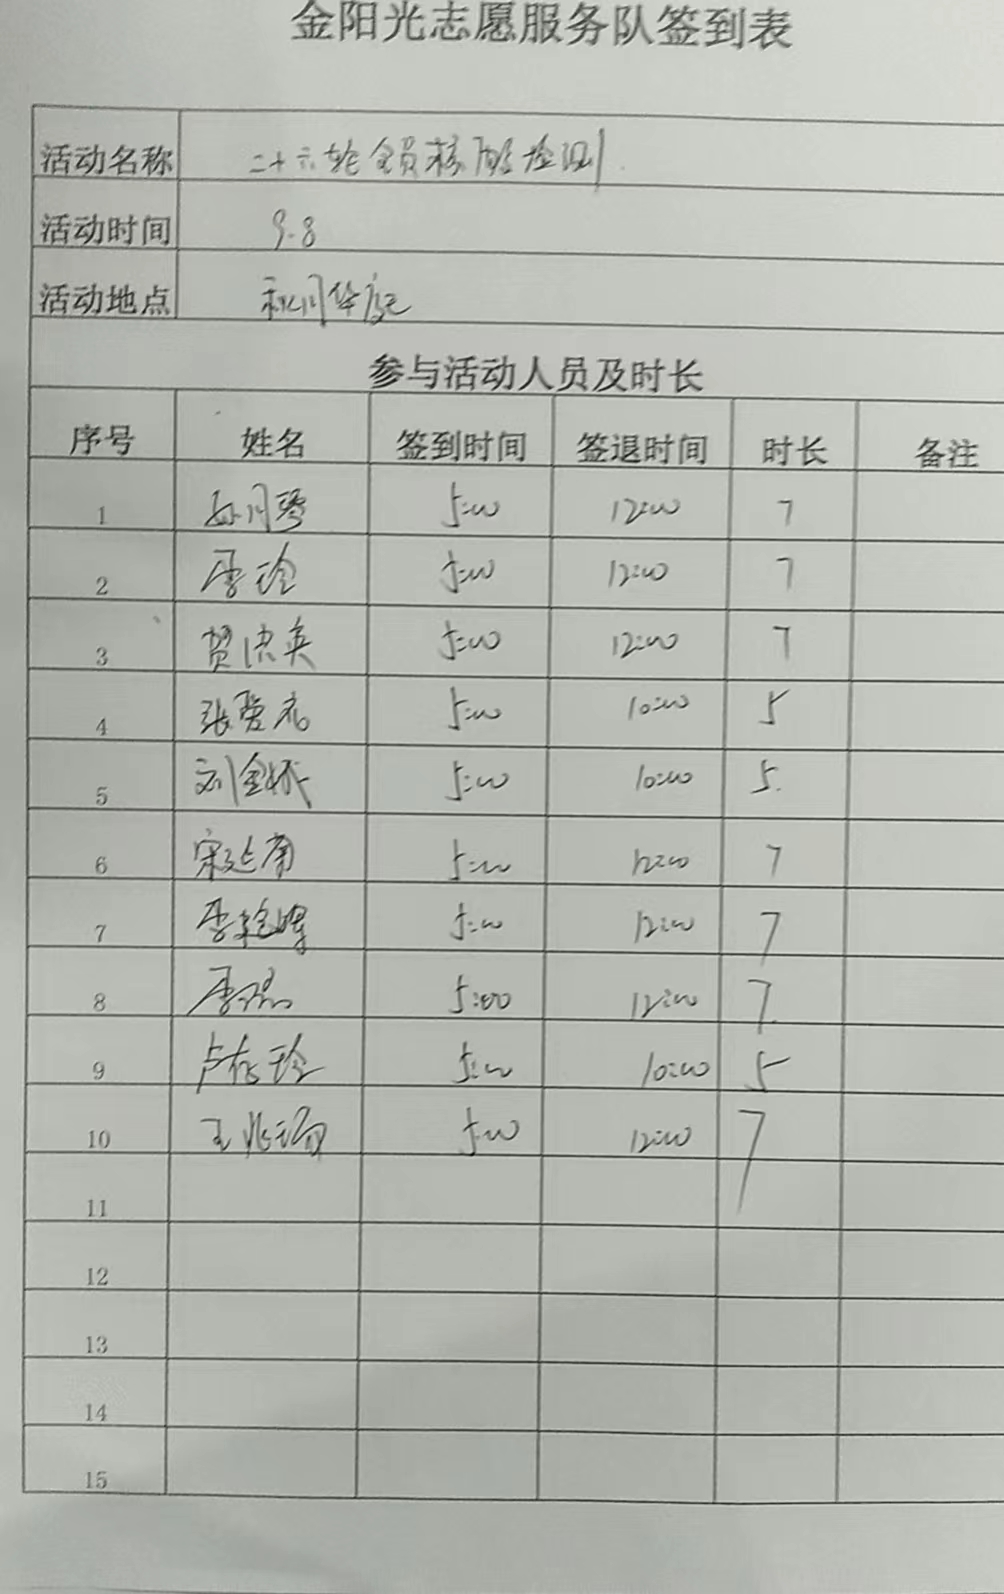 金阳光志愿服务队签到表
活动名称 二十六轮全员核酸检测
活动时间 9.8
活动地点
参与活动人员及时长
序号 姓名 签到时间 签退时间 时长 备注
1 5:00 12:00 7
2 李玲 5:00 12:00 7
3 贺洪英 5:00 12:00 7
4 5:00 10:00 5
5 5:00 10:00 5
6 宋延南 5:00 12:00 7
7 李艳辉 5:00 12:00 7
8 5:00 12:00 7
9 卢存玲 5:00 10:00 5
10 5:00 12:00 7
11
12
13
14
15